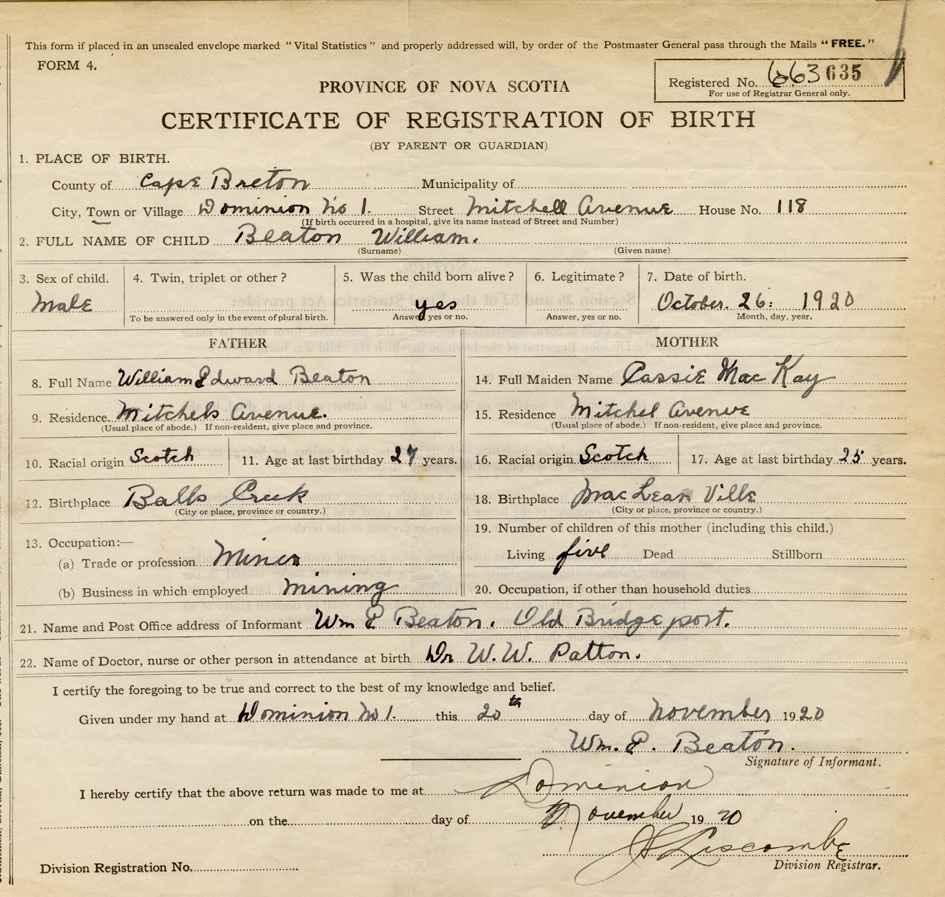 This form if placed in an unsealed envelope marked "Vital Statistics" and properly addressed will, by order of the Postmaster General pass through the Mails "FREE."
FORM 4.
Registered No. 663 635
For use of Registrar General only.
PROVINCE OF NOVA SCOTIA
CERTIFICATE OF REGISTRATION OF BIRTH
(BY PARENT OR GUARDIAN)
1. PLACE OF BIRTH.
County of Cape Breton Municipality of
City, Town or Village Dominion No 1. Street Mitchell Avenue House No. 118
(If birth occurred in a hospital, give its name instead of Street and Number)
2. FULL NAME OF CHILD Beaton William.
(Surname) (Given name)
3. Sex of child. 4. Twin, triplet or other? 5. Was the child born alive? 6. Legitimate? 7. Date of birth.
Male yes October. 26: 1920
To be answered only in the event of plural birth. Answer, yes or no. Answer, yes or no. Month, day, year.
FATHER MOTHER
8. Full Name William Edward Beaton 14. Full Maiden Name Cassie Mac Kay
9. Residence. Mitchels Avenue. 15. Residence Mitchel Avenue
(Usual place of abode.) If non-resident, give place and province. (Usual place of abode.) If non-resident, give place and province.
10. Racial origin Scotch 11. Age at last birthday 27 years. 16. Racial origin Scotch 17. Age at last birthday 25 years.
12. Birthplace Balls Creek 18. Birthplace Mac Lean Ville
(City or place, province or country.) (City or place, province or country.)
19. Number of children of this mother (including this child.)
13. Occupation:—
Living five Dead Stillborn
(a) Trade or profession Miner
(b) Business in which employed mining 20. Occupation, if other than household duties
21. Name and Post Office address of Informant Wm E Beaton. Old Bridgeport.
22. Name of Doctor, nurse or other person in attendance at birth Dr W.W. Patton.
I certify the foregoing to be true and correct to the best of my knowledge and belief.
Given under my hand at Dominion No 1. this 20th day of November 1920
Wm. E. Beaton.
Signature of Informant.
I hereby certify that the above return was made to me at Dominion
on the day of November 1920
Liscombe
Division Registration No. Division Registrar.